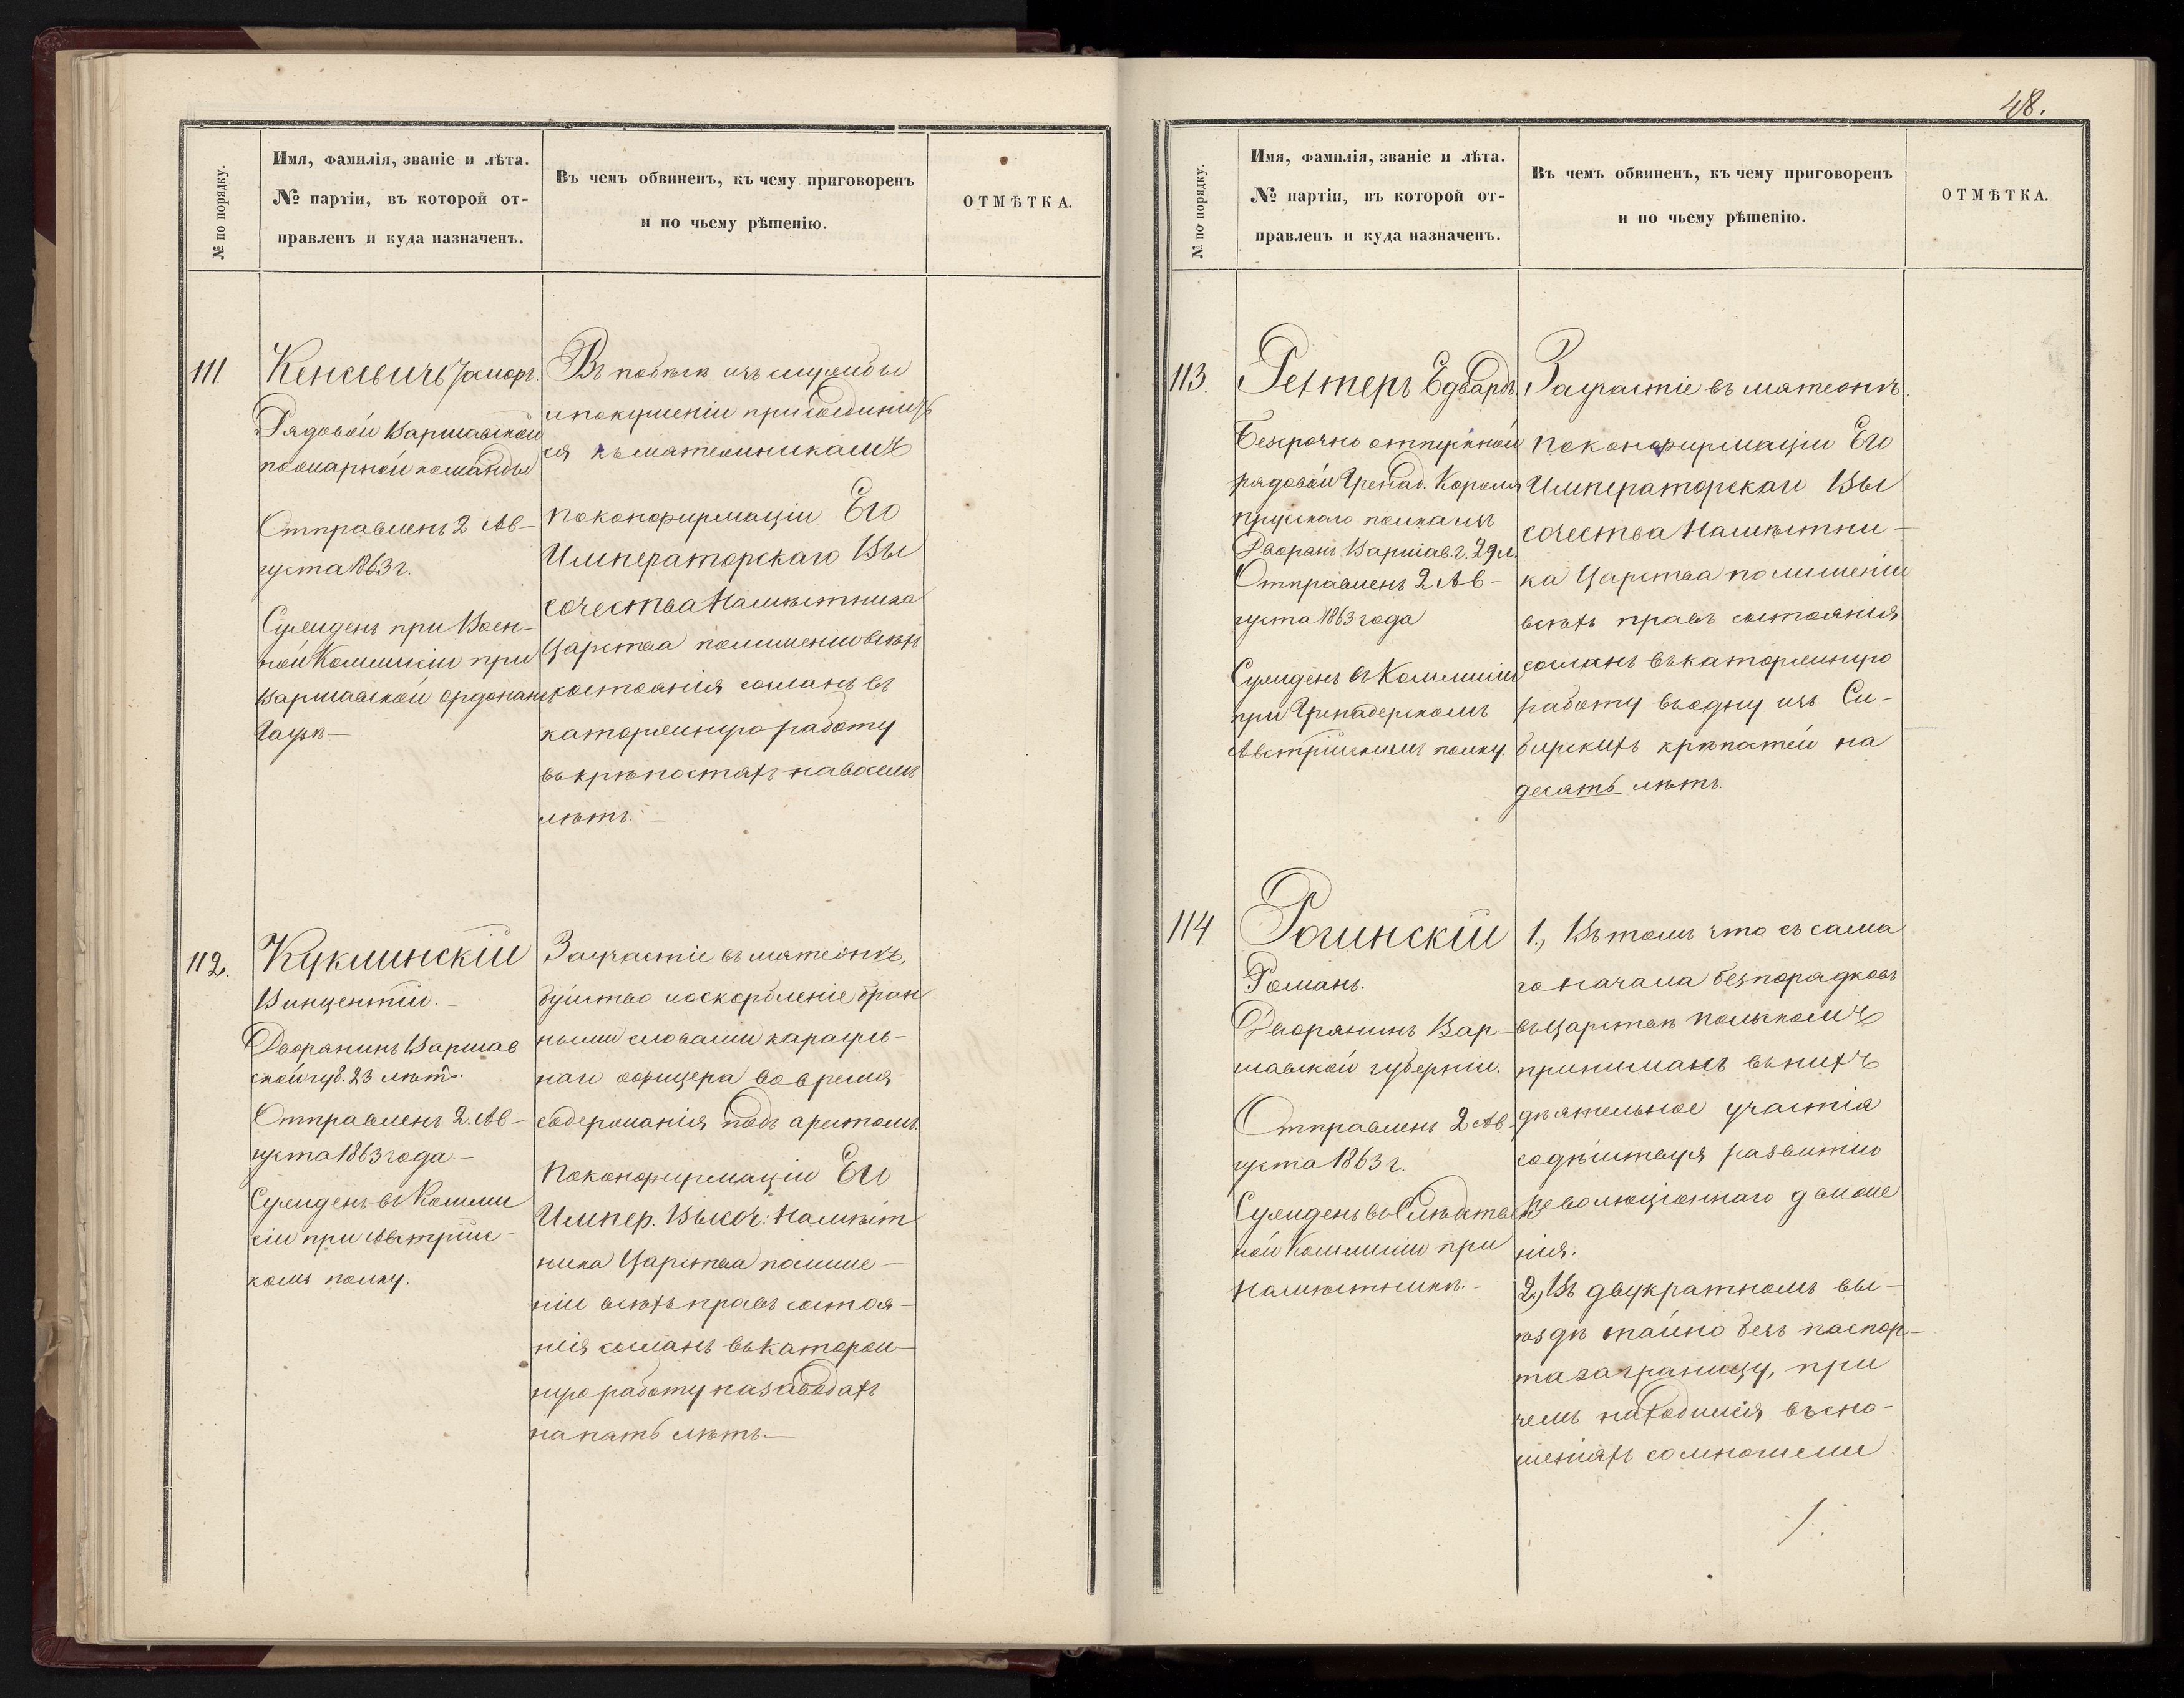 № по порядку.
Имя, фамилія, званіе и лѣта.
№ партіи, въ которой от-
правленъ и куда назначенъ.
Въ чемъ обвиненъ, къ чему приговоренъ
и по чьему рѣшенію.
ОТМѢТКА.
111.
Рядовой Варшавской
пожарной команды
Отправленъ 2 Ав-
густа 1863 г.
Сужденъ при Воен-
ной Коммисіи при
Варшавской Ордонанс
Гаузѣ —
Въ побѣгѣ изъ службы
и покушеніи присоединить
ся къ мятежникамъ
по конфирмаціи Его
Императорскаго Вы
сочества Намѣстника
Царства по лишеніи всѣхъ
состоянія сосланъ въ
каторжную работу
въ крѣпостяхъ на восемь
лѣтъ. —
112.
Куклинскій
Винцентій. —
Дворянинъ Варшав
ской губ. 23 лѣтъ.
Отправленъ 2. Ав-
густа 1863 года. —
Сужденъ въ Комми
сіи при Австрійс-
комъ полку.
За участіе въ мятежѣ,
буйство и оскорбленіе бран
ными словами карауль-
наго офицера во время
содержанія подъ арестомъ.
По конфирмаціи Его
Импер. Высоч: Намѣст
ника Царства по лише-
ніи всѣхъ правъ состоя-
нія сосланъ въ каторж-
ную работу на заводахъ
на пять лѣтъ. —
48.
№ по порядку.
Имя, фамилія, званіе и лѣта.
№ партіи, въ которой от-
правленъ и куда назначенъ.
Въ чемъ обвиненъ, къ чему приговоренъ
и по чьему рѣшенію.
ОТМѢТКА.
113.
Рехтеръ Едвардъ.
Безсрочно отпускной
рядовой Гренад. Короля
Прусскаго полка изъ
Дворянъ Варшав. г. 29 л.
Отправленъ 2 Ав-
густа 1863 года
Сужденъ въ Коммисіи
при Гренадерскомъ
Австрійскомъ полку.
За участіе въ мятежѣ.
по конфирмаціи Его
Императорскаго Вы
сочества Намѣстни-
ка Царства по лишеніи
всѣхъ правъ состоянія
сосланъ въ каторжную
работу въ одну изъ Си-
бирскихъ крѣпостей на
десять лѣтъ.
114.
Рогинскій
Романъ.
Дворянинъ Вар-
шавской губерніи.
Отправленъ 2 Ав-
густа 1863 г.
Сужденъ въ Слѣдствен
ной Коммисіи при
Намѣстникѣ. —
1., Въ томъ что съ сама
го начала безпорядковъ
въ Царствѣ Польскомъ
принималъ въ нихъ
дѣятельное участіе
содѣйствуя развитію
революціоннаго движе
нія.
2., Въ двукратномъ вы-
ѣздѣ тайно безъ паспор-
та за границу, при
чемъ находился въ сно-
шеніяхъ со многими
/.